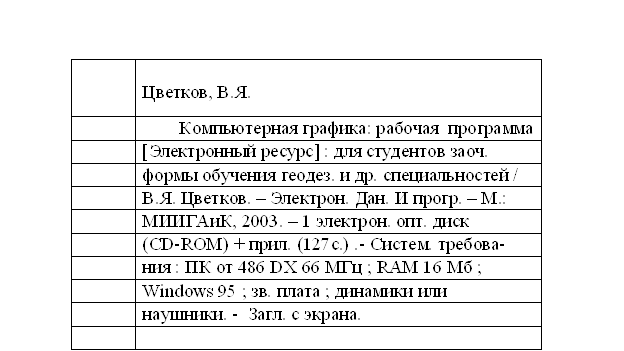 Цветков, В.Я.
Компьютерная графика: рабочая программа
[Электронный ресурс] : для студентов заоч.
формы обучения геодез. и др. специальностей /
В.Я. Цветков. – Электрон. Дан. И прогр. – М.:
МИИГАиК, 2003. – 1 электрон. опт. диск
(CD-ROM) + прил. (127 с.) .- Систем. требова-
ния : ПК от 486 DX 66 МГц ; RAM 16 Мб ;
Windows 95 ; зв. плата ; динамики или
наушники. - Загл. с экрана.